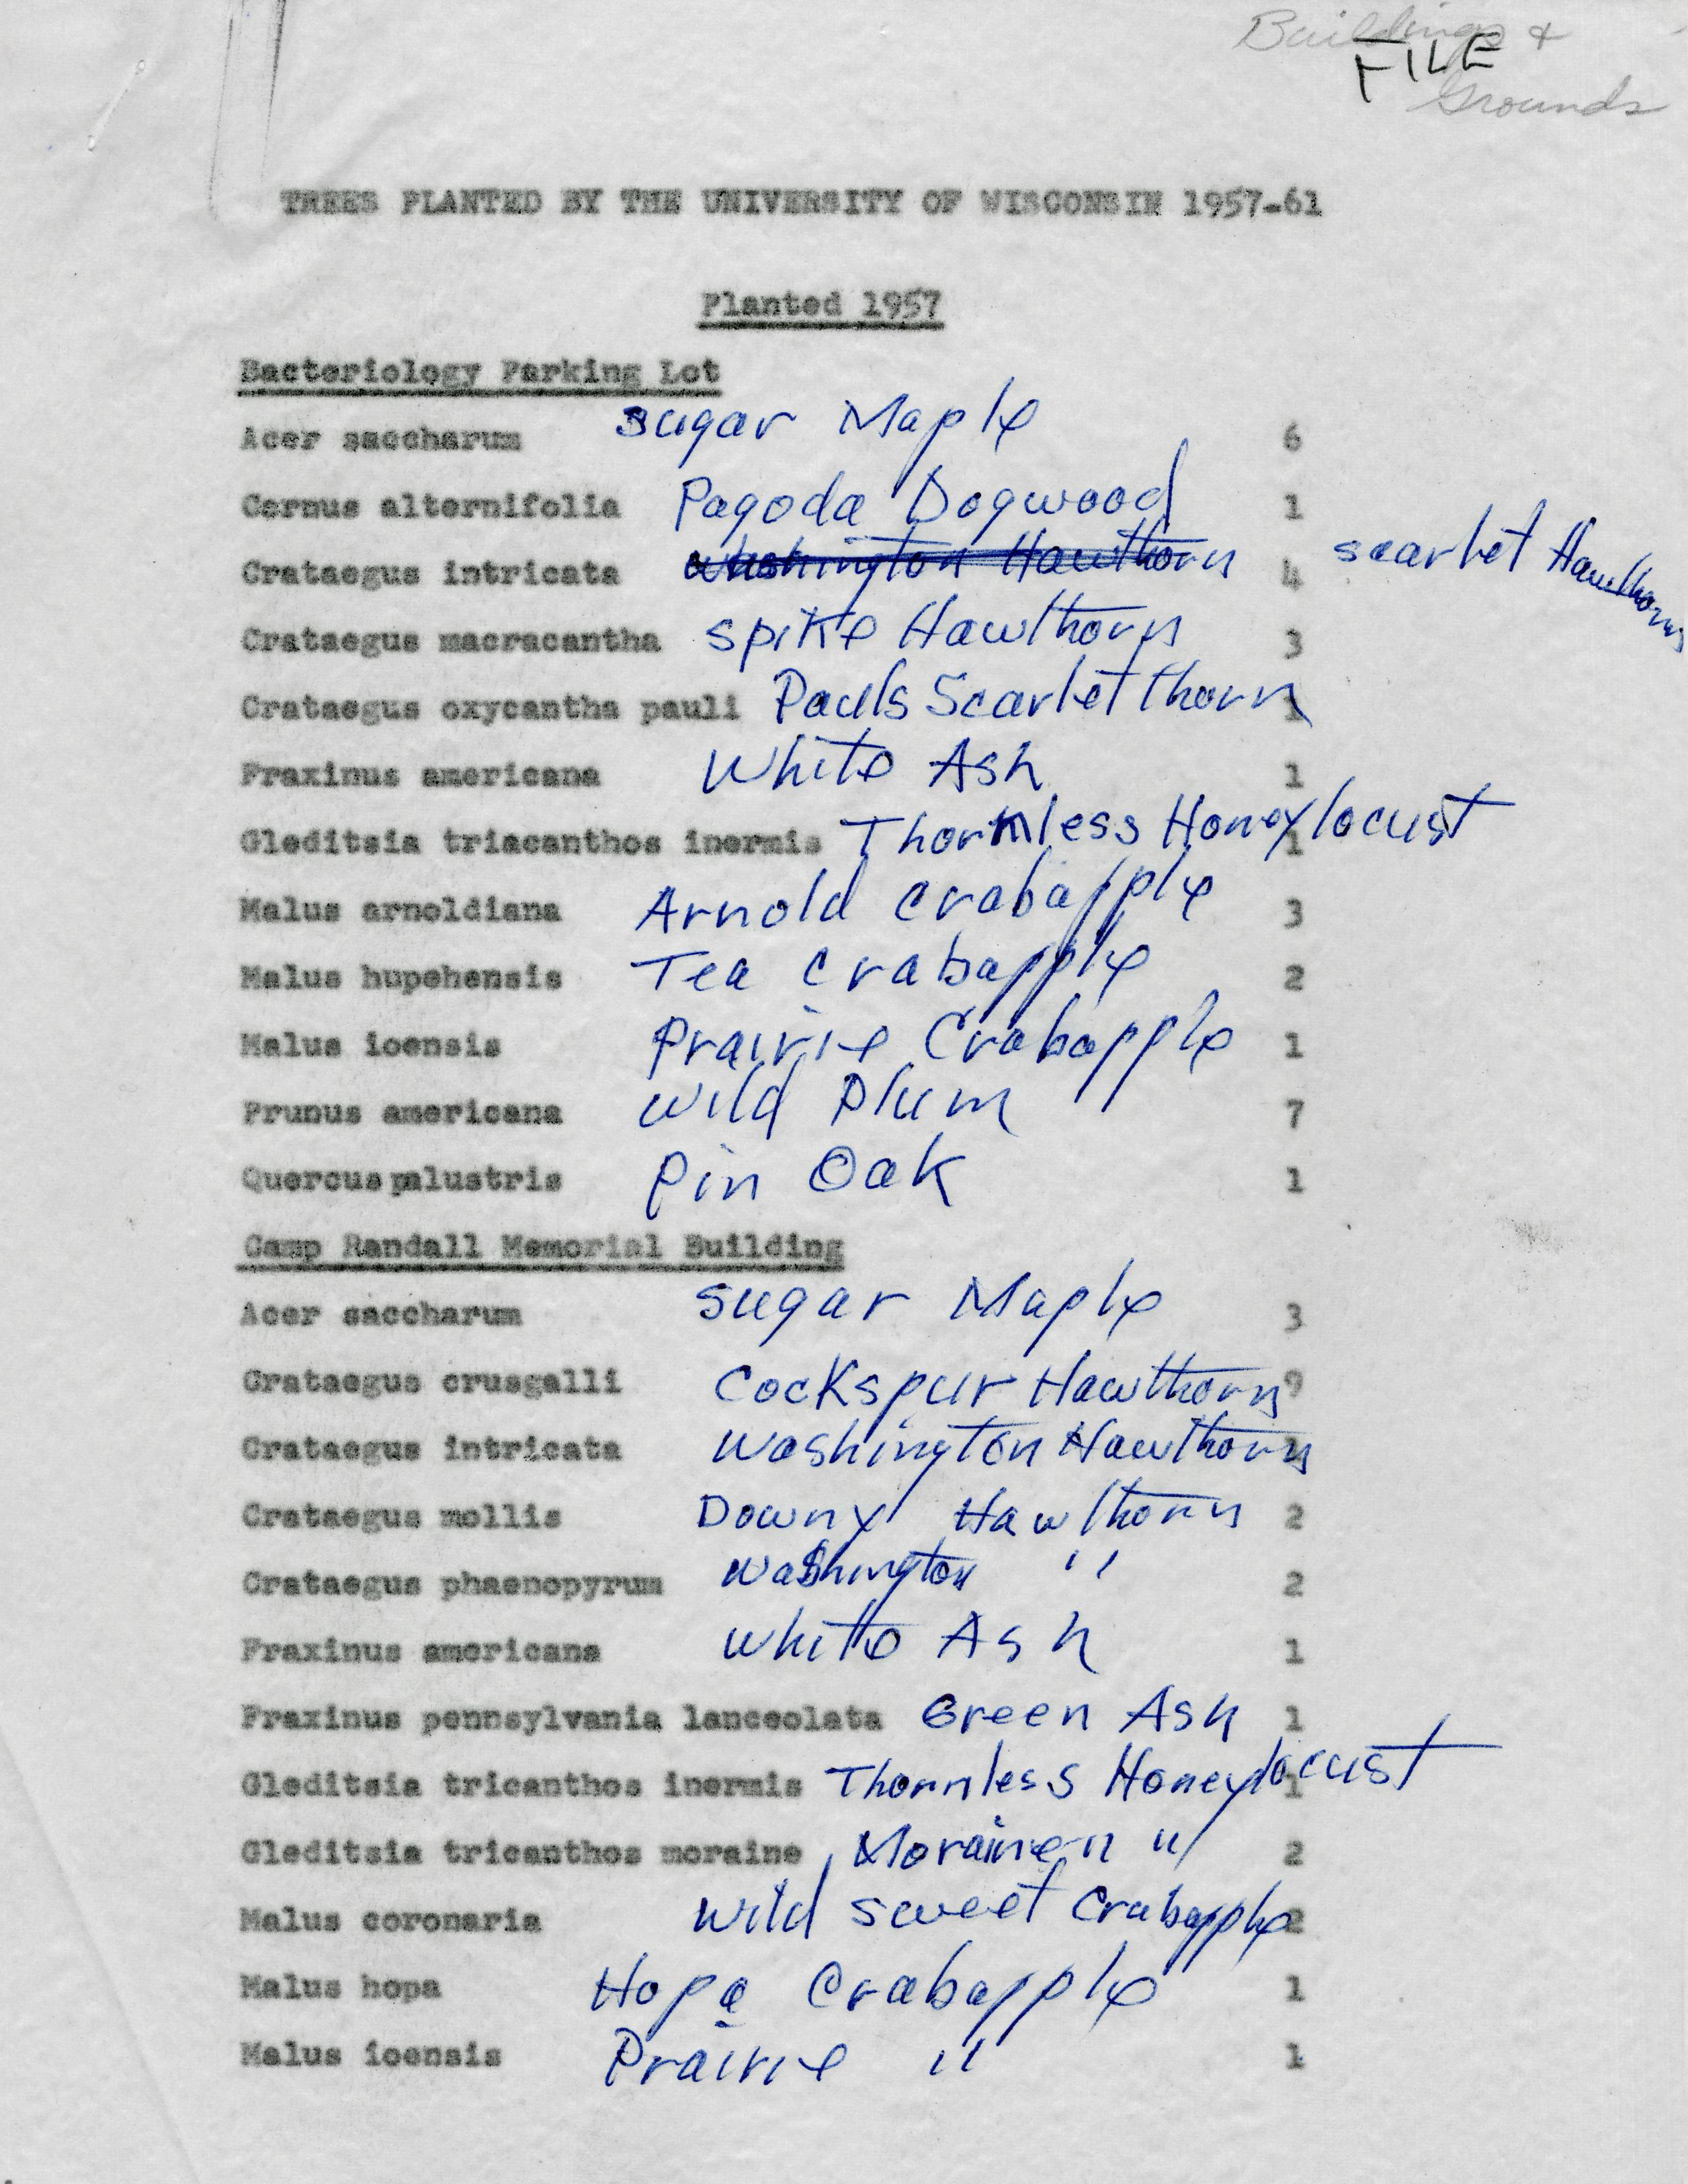 Buildings &
FILE
Grounds
TREES PLANTED BY THE UNIVERSITY OF WISCONSIN 1957-61
Planted 1957
Bacteriology Parking Lot
Acer saccharum sugar Maple 6
Cornus alternifolia Pagoda Dogwood 1
Crataegus intricata Washington Hawthorn 4 scarlet Hawthorn
Crataegus macracantha spike Hawthorn 3
Crataegus oxycantha pauli Pauls Scarlet thorn 1
Fraxinus americana White Ash 1
Gleditsia triacanthos inermis Thornless Honeylocust 1
Malus arnoldiana Arnold crabapple 3
Malus hupehensis Tea crabapple 2
Malus ioensis Prairie Crabapple 1
Prunus americana wild Plum 7
Quercus palustris Pin Oak 1
Camp Randall Memorial Building
Acer saccharum sugar Maple 3
Crataegus crusgalli Cockspur Hawthorn 9
Crataegus intricata Washington Hawthorn
Crataegus mollis Downy Hawthorn 2
Crataegus phaenopyrum Washington " 2
Fraxinus americana White Ash 1
Fraxinus pennsylvania lanceolata Green Ash 1
Gleditsia tricanthos inermis Thornless Honeylocust 1
Gleditsia tricanthos moraine Morainen " 2
Malus coronaria Wild sweet Crabapple 2
Malus hopa Hopa Crabapple 1
Malus ioensis Prairie " 1